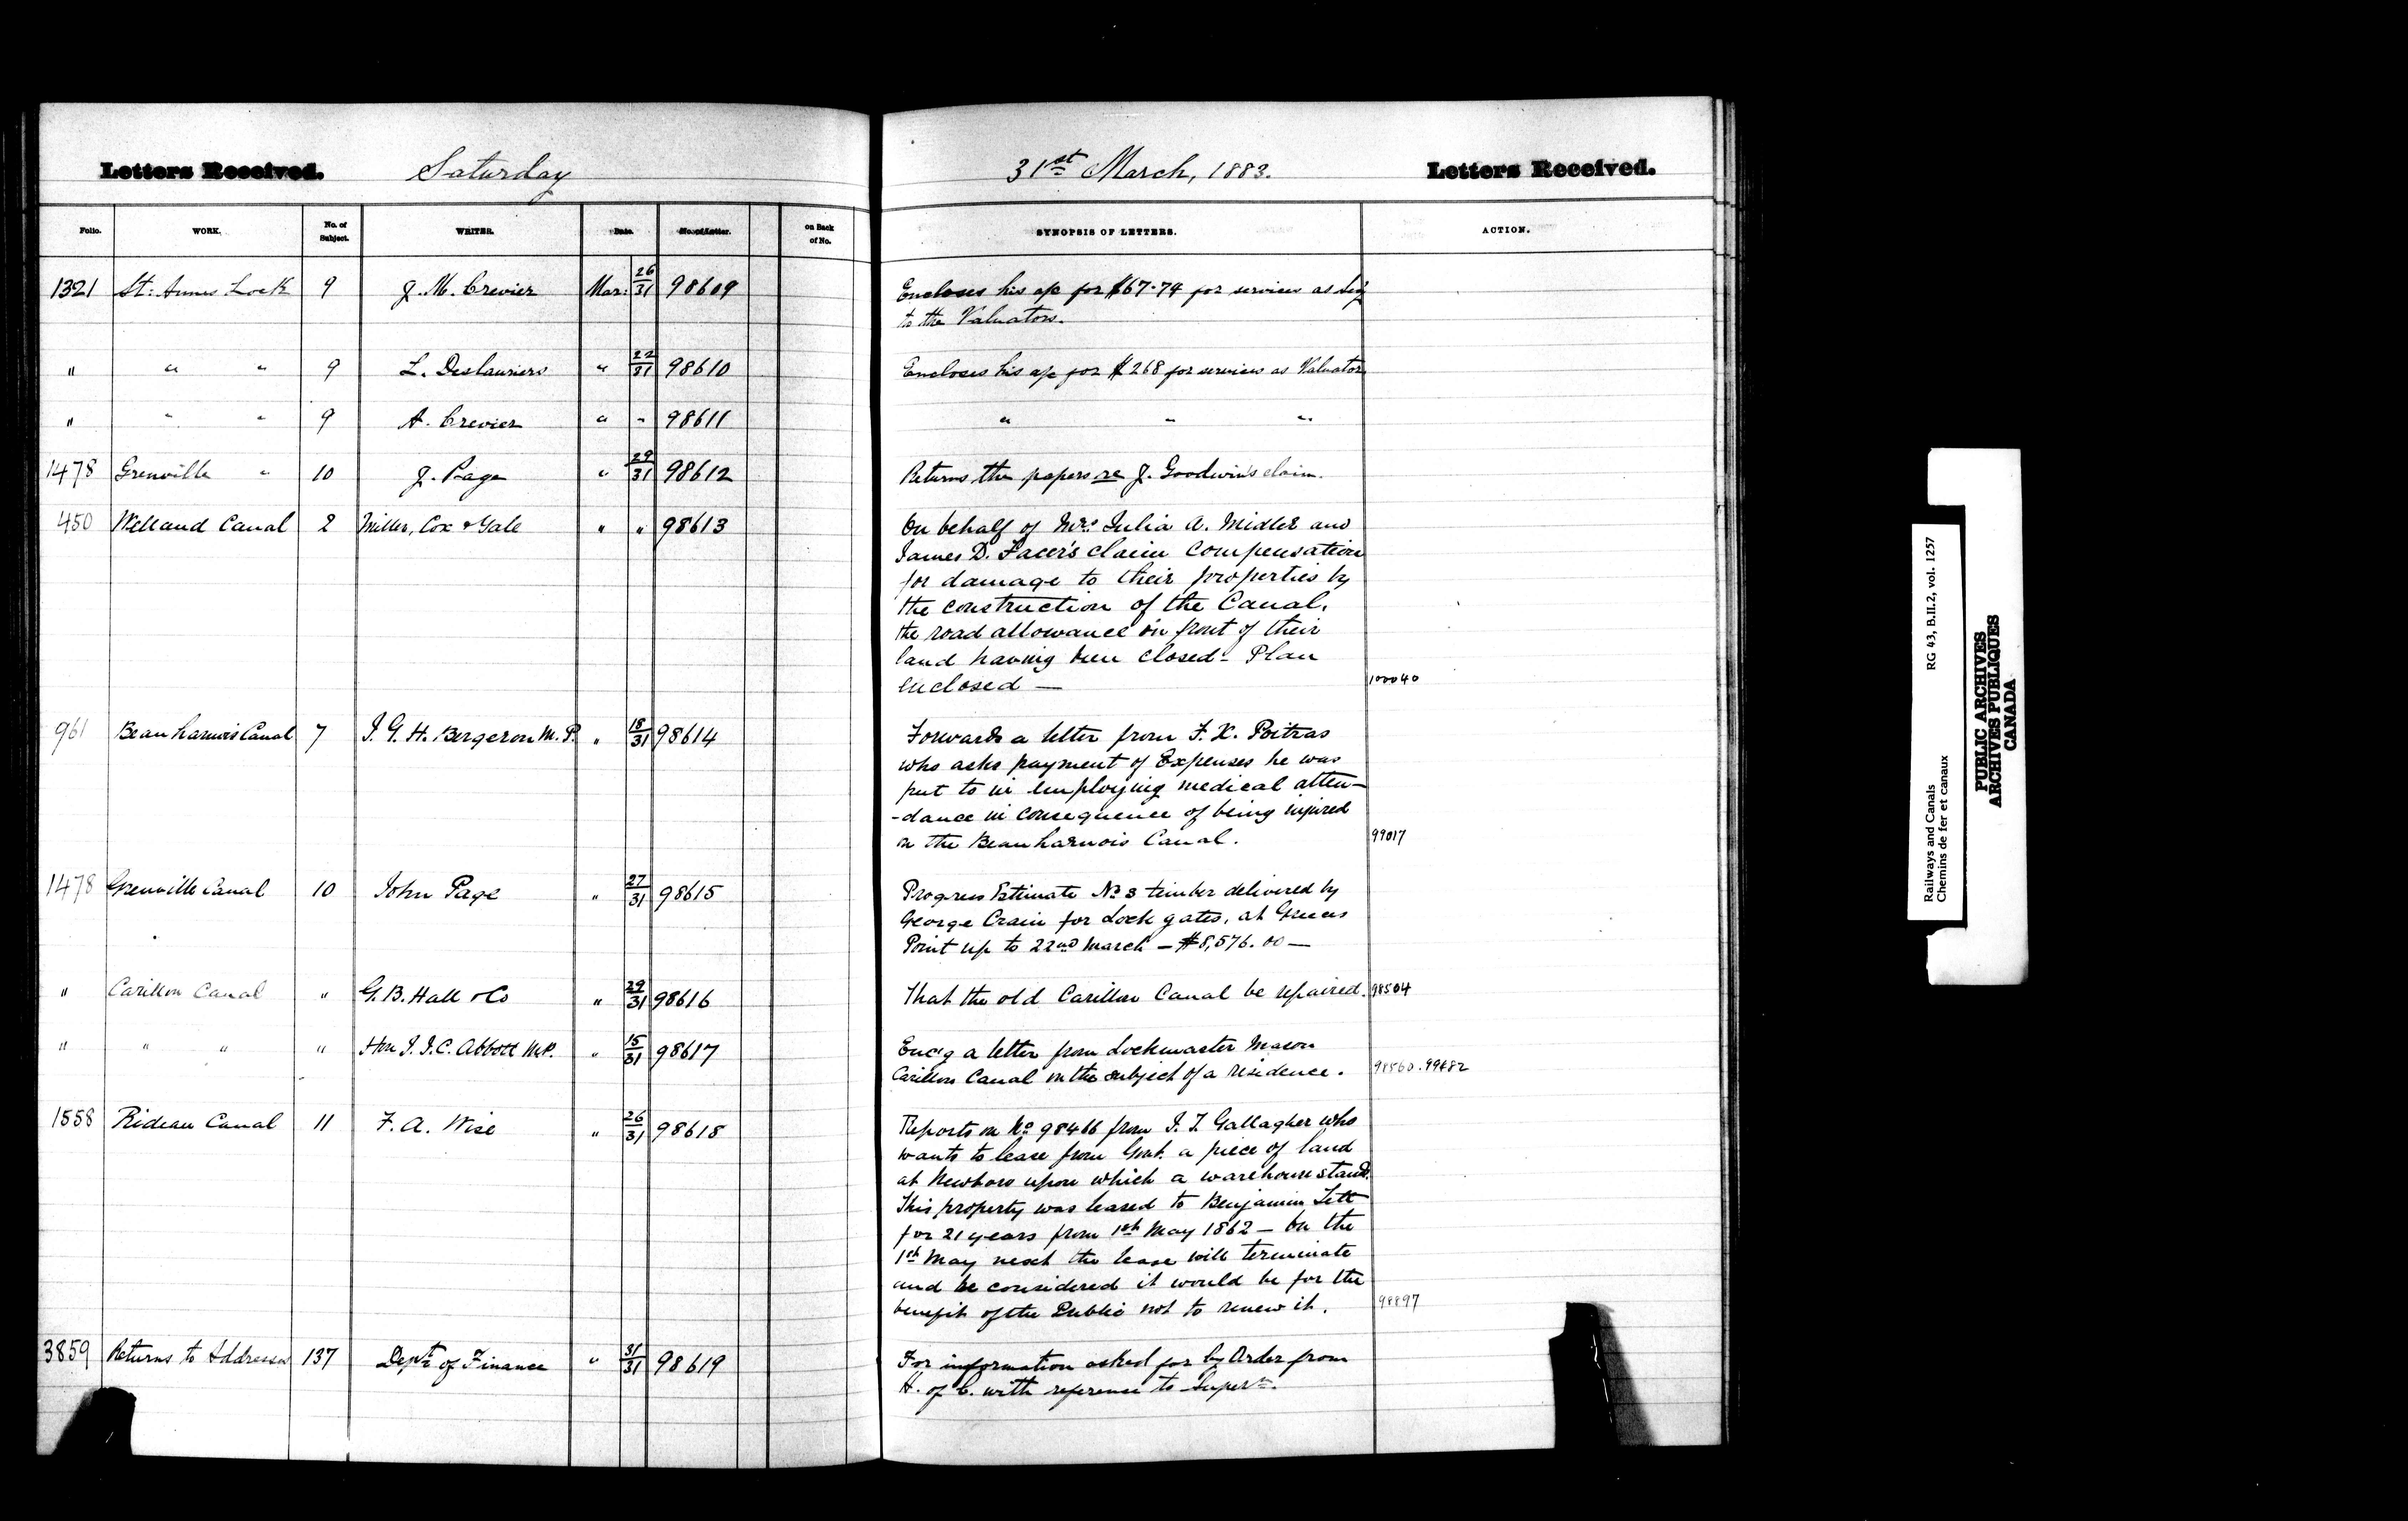 Letters Received. Saturday 31st March, 1883. Letters Received.
Folio. WORK. No. of Subject. WRITER. Date. No. of Letter. on Back of No. SYNOPSIS OF LETTERS. ACTION.
1321 St: Annes Lock 9 J. M. Crevier Mar: 26/31 98609 Encloses his a/c for $67.74 for services as Secy
to the Valuators.
" " " 9 L. Deslauriers " 22/31 98610 Encloses his a/c for $268 for services as Valuator
" " " 9 A. Crevier " " 98611 " " "
1478 Grenville " 10 J. Page " 29/31 98612 Returns the papers re J. Goodwin's claim.
450 Welland Canal 2 Miller, Cox & Gale " " 98613 On behalf of Mrs. Julia A. Midler and
James D. Facer's claim compensation
for damage to their properties by
the construction of the Canal.
the road allowance in front of their
land having been closed - Plan
enclosed — 100040
961 Beauharnois Canal 7 J. G. H. Bergeron M.P. " 18/31 98614 Forwards a letter from F. X. Poitras
who asks payment of Expenses he was
put to in employing medical atten-
-dance in consequence of being injured
on the Beauharnois Canal. 99017
1478 Grenville Canal 10 John Page " 27/31 98615 Progress Estimate No 3 timber delivered by
George Crain for Lock gates, at Greeces
Point up to 22nd March — $8,576.00 —
" Carillon Canal " G. B. Hall & Co " 29/31 98616 That the old Carillon Canal be repaired. 98504
" " " " Hon J. J. C. Abbott M.P. " 15/31 98617 Enc'g a letter from Lockmaster Mason
Carillon Canal on the subject of a residence. 98560. 99482
1558 Rideau Canal 11 F. A. Wise " 26/31 98618 Reports on No 98466 from J. T. Gallagher who
wants to lease from Govt. a piece of land
at Newboro upon which a warehouse stands.
This property was leased to Benjamin Tett
for 21 years from 1st May 1862 — On the
1st May next the lease will terminate
and he considered it would be for the
benefit of the Public not to renew it. 98897
3859 Returns to Addresses 137 Dept of Finance " 31/31 98619 For information asked for by Order from
H. of C. with reference to Supern.
Railways and Canals RG 43, B.II.2, vol. 1257
Chemins de fer et canaux
PUBLIC ARCHIVES
ARCHIVES PUBLIQUES
CANADA